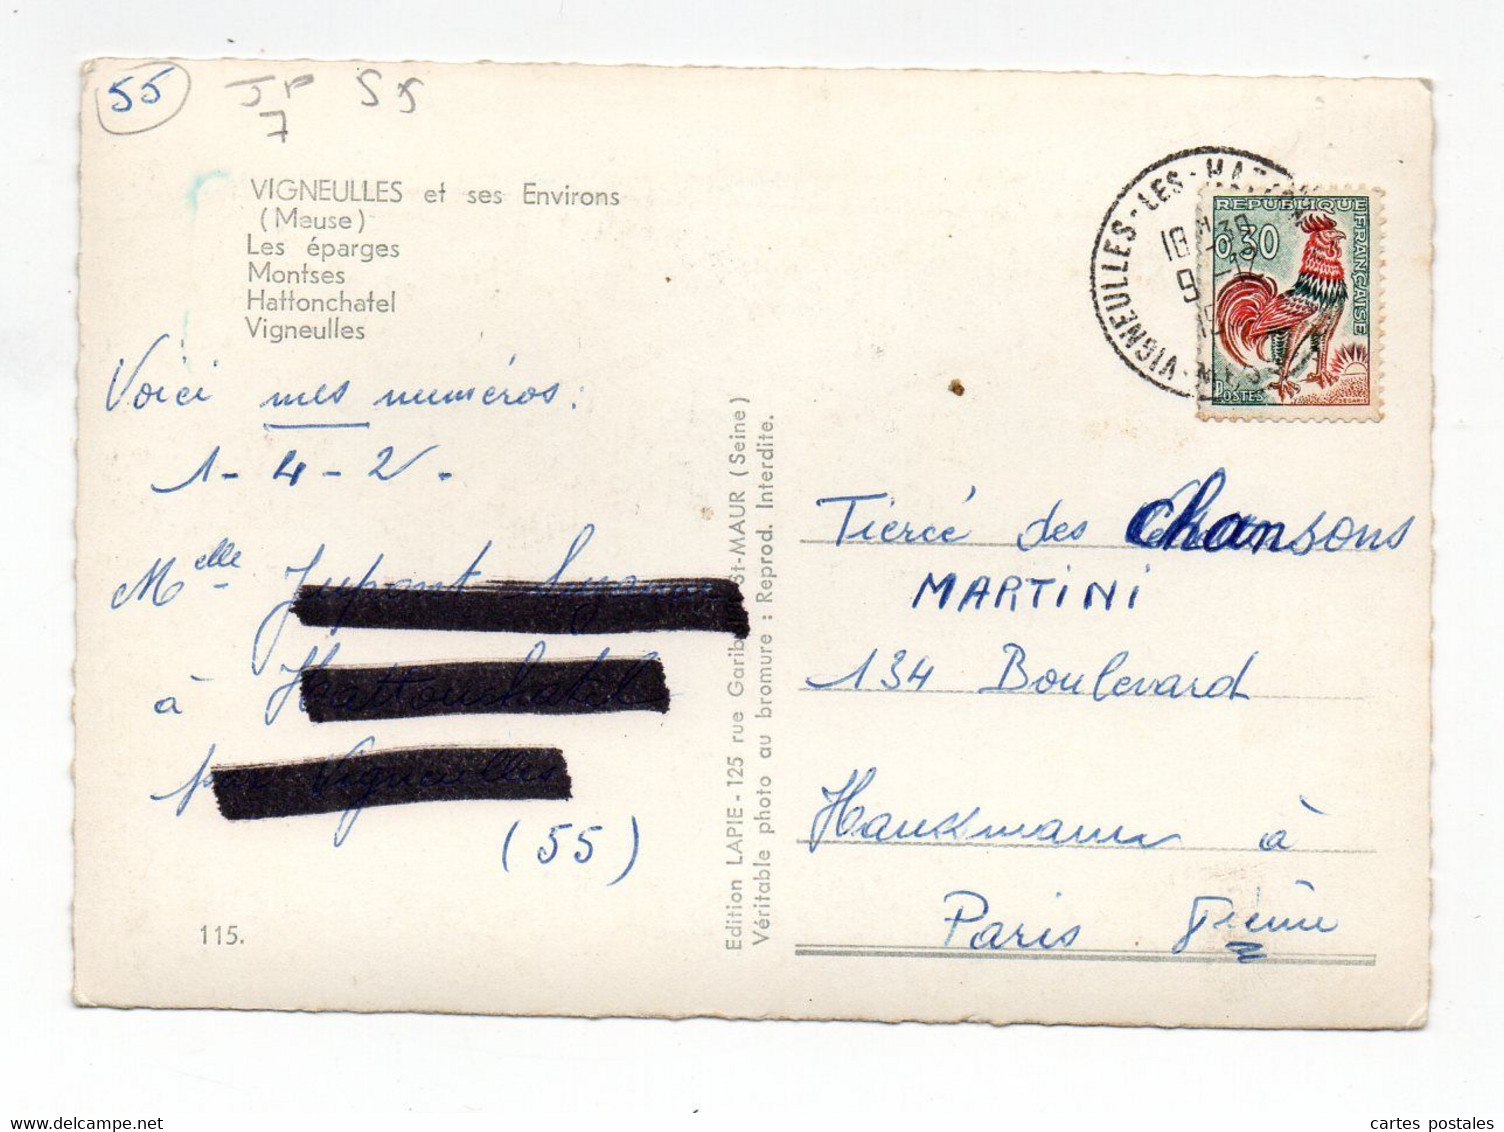 55
JP 55
7
VIGNEULLES et ses Environs
(Meuse)
Les éparges
Montses
Hattonchatel
Vigneulles
Voici mes numéros :
1 - 4 - 2 -
Melle
à
(55)
115.
Edition LAPIE - 125 rue Garib St-MAUR (Seine)
Véritable photo au bromure : Reprod. Interdite.
VIGNEULLES-LES-HAT
18
9
REPUBLIQUE FRANÇAISE
0,30
POSTES
Tiercé des Chansons
MARTINI
134 Boulevard
Hausmann à
Paris
cartes-postales-delcampe.net
cartes postales